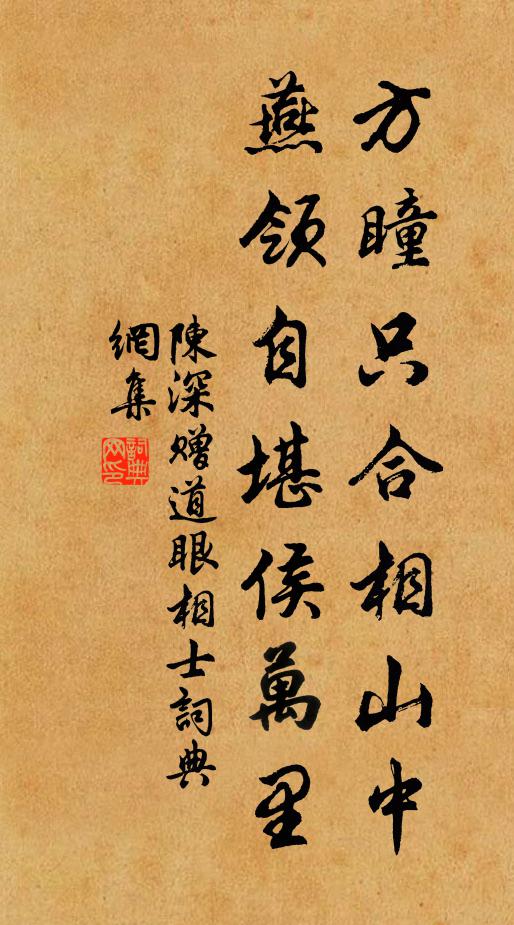 方瞳只合相山中
燕領自堪侯萬里
陳深贈道眼相士詞典
網集
詞典網印